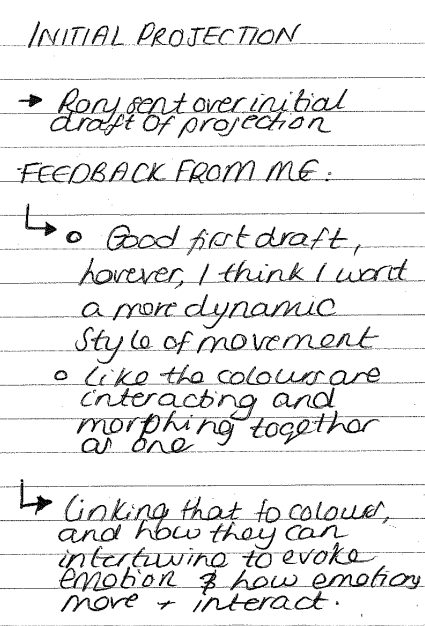 INITIAL PROJECTION
→ Rory sent over initial
draft of projection
FEEDBACK FROM ME:
↳ o Good first draft,
however, I think I want
a more dynamic
style of movement
o like the colours are
interacting and
morphing together
as one
↳ linking that to colours,
and how they can
intertwine to evoke
emotion & how emotions
move + interact.